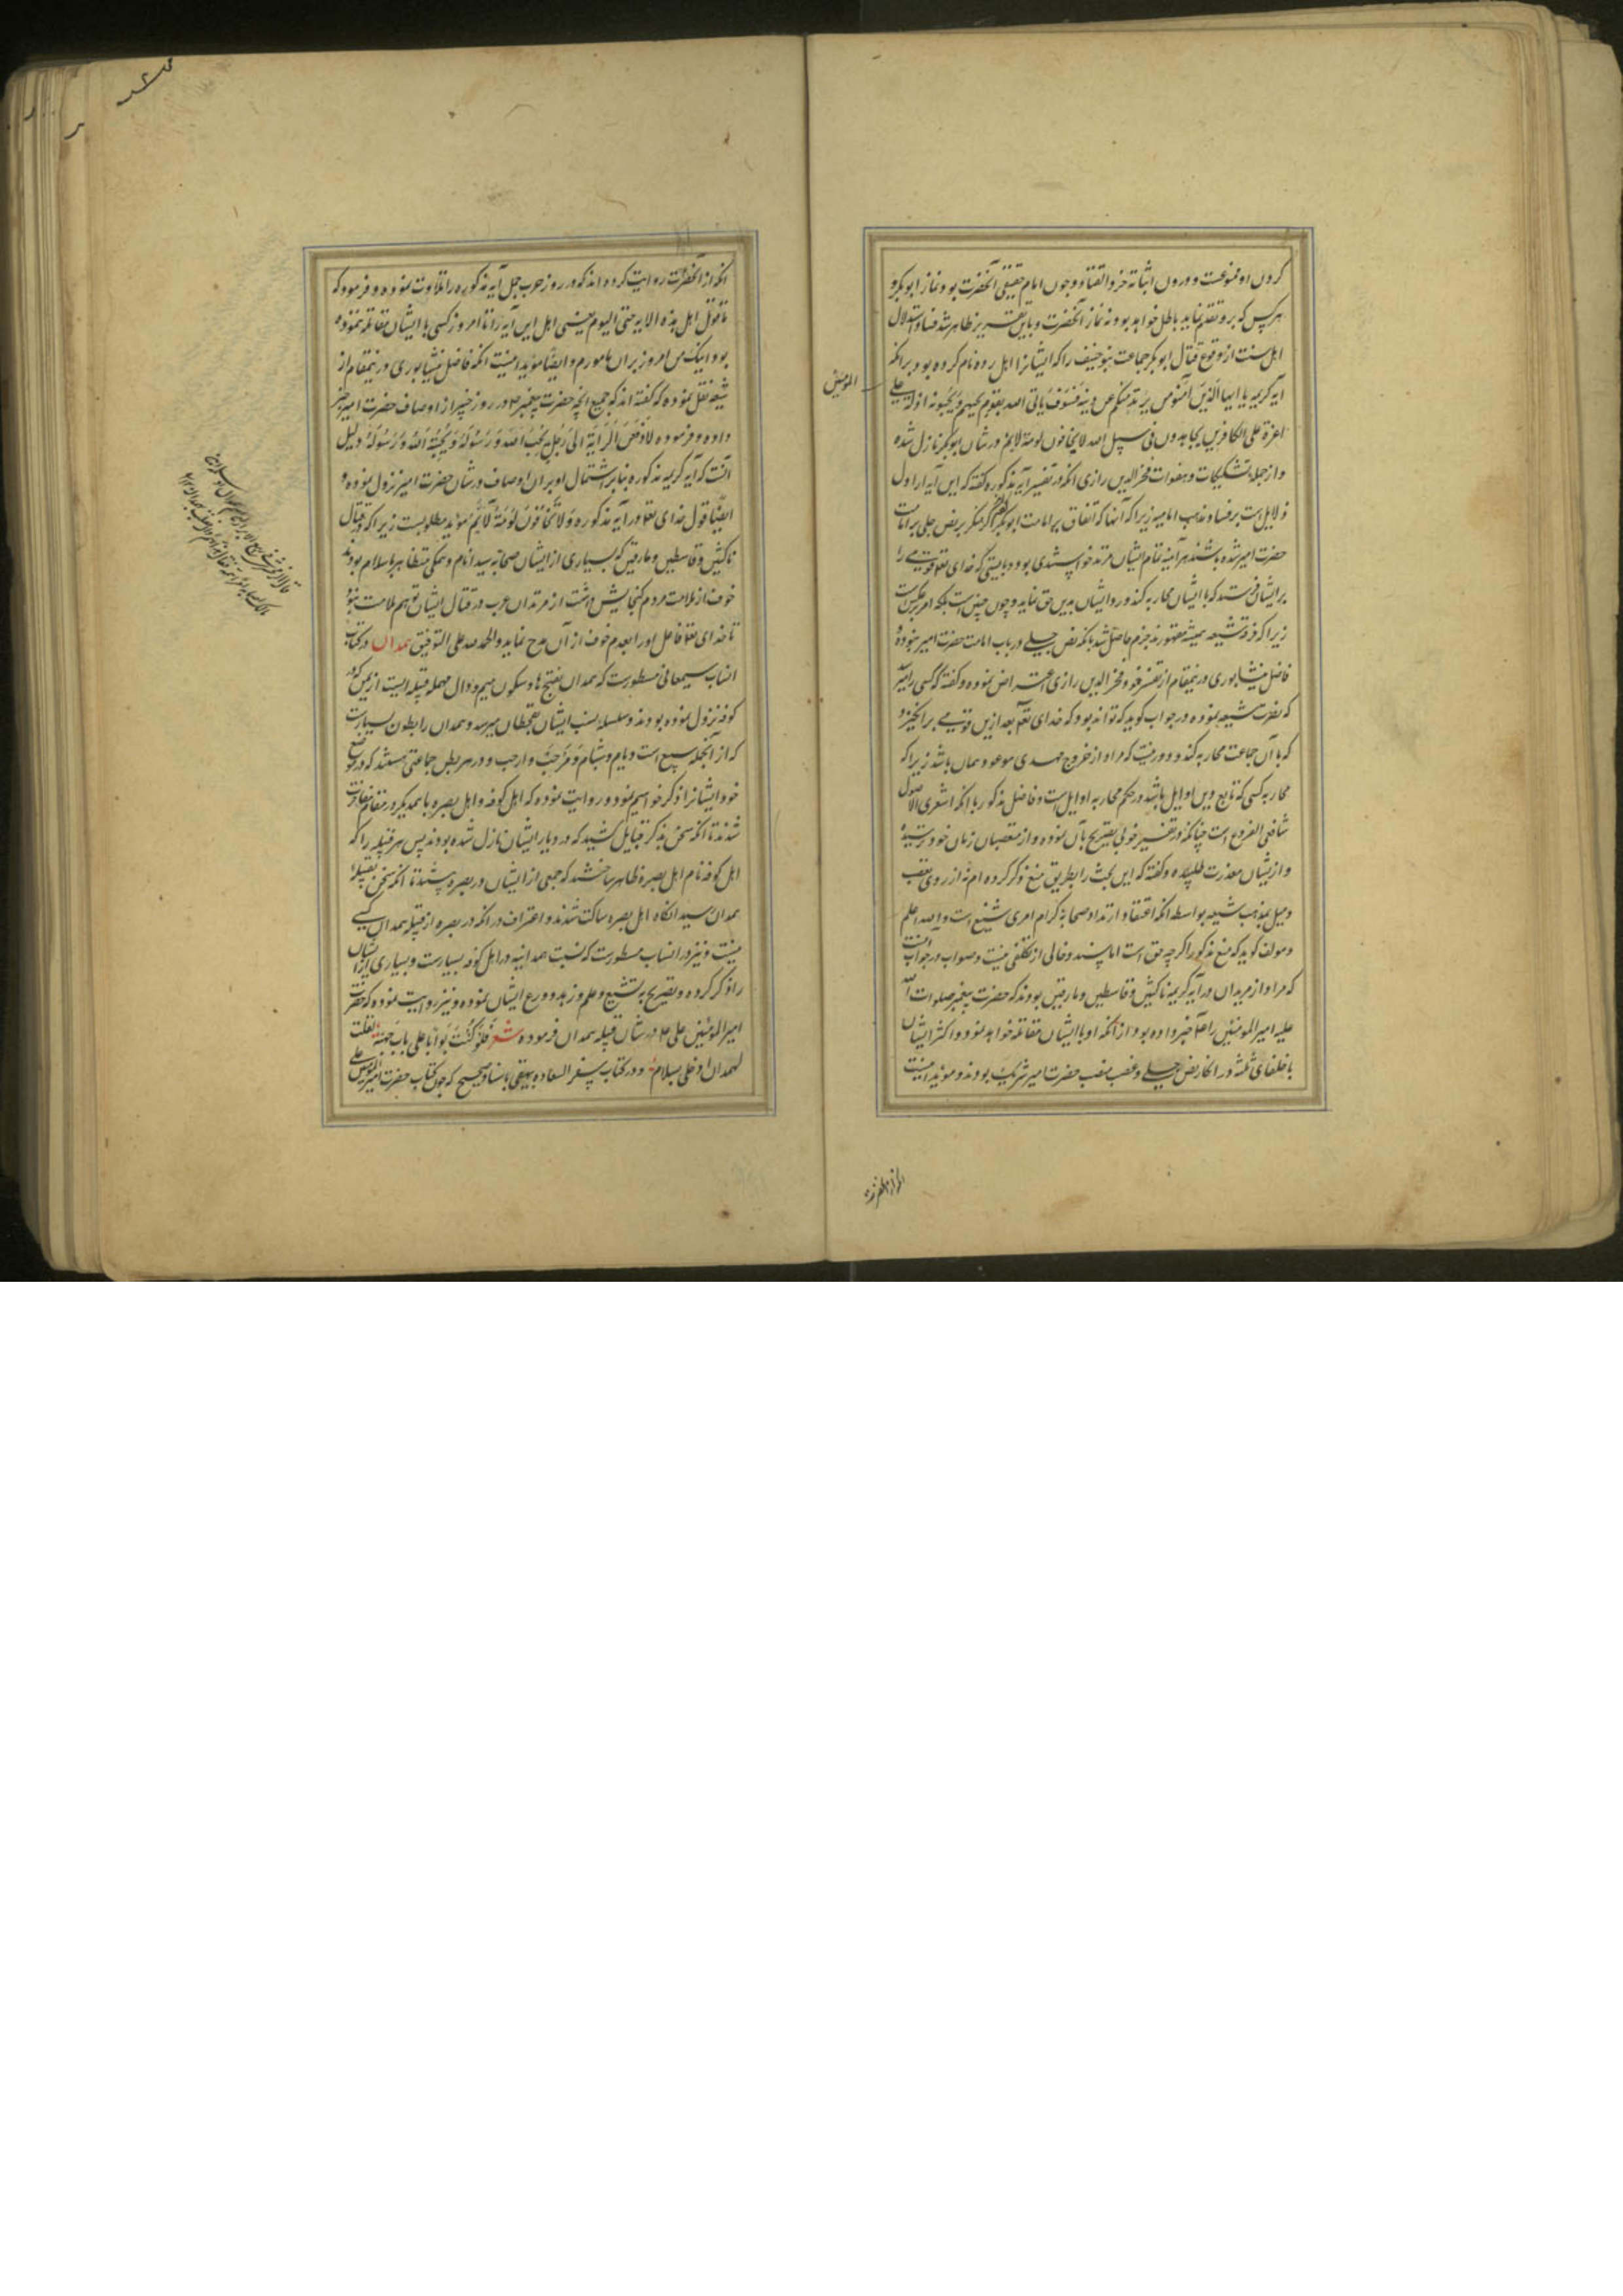 کردن او ممنوعست و چون امام حقیقی آنحضرت بود نماز ابوبکر و
هر کس که برو تقدم نماید باطل خواهد بود نه نماز آنحضرت و باین تقریر ظاهر شد فساد استدلال
اهل سنت از وقوع قتال ابوبکر جماعت بنو حنیف را که ایشانرا اهل رده نام کرده بود بر انکه
آیه کریمه یا ایها الذین آمنوا من یرتد منکم عن دینه فسوف یاتی الله بقوم یحبهم و یحبونه اذلة علی
المومنین
اعزة علی الکافرین یجاهدون فی سبیل الله لا یخافون لومة لایم در شان ابوبکر نازل شده
و از جمله تشکیکات و هفوات فخر الدین رازی انکه در تفسیر آیه مذکوره گفته که این آیه از اول
دلایل است بر فساد مذهب امامیه زیرا که آنها که اتفاق بر امامت ابوبکر کردند اگر منکر نص جلی بر امامت
حضرت امیر شده باشند هر آینه تمام ایشان مرتد خواهند بود و بایستی که خدای تعالی قومی را
بر ایشان فرستد که با ایشان محاربه کند و رد ایشان بدین حق نماید و چون چنین است بلکه امر بر عکس است
زیرا که فرقه شیعه همیشه مقهورند جزم حاصل شد بانکه نص جلی در باب امامت حضرت امیر نبوده و
فاضل نیشابوری درینمقام از تفسیر خود بر فخر الدین رازی اعتراض نموده و گفته که کسی را میرسد
که نصرت شیعه نموده در جواب گوید که تواند بود که خدای تعالی بعد ازین قومی برانگیزد
که با آن جماعت محاربه کند و دور نیست که مراد از خروج مهدی موعود همان باشد زیرا که
محاربه کسی که تابع دین اوایل باشد در حکم محاربه اوایل است و فاضل مذکور با انکه اشعری الاصول
شافعی الفروع است چنانکه در تفسیر خود تصریح بآن نموده و از متعصبان زمان خود ترسیده
و ازیشان معذرت طلبیده و گفته که این بحث را بطریق منع ذکر کرده ام نه از روی تعصب
و میل بمذهب شیعه بواسطه انکه اعتقاد ارتداد صحابه کرام امری شنیع است والله اعلم
و مولف گوید که منع مذکور اگر چه حق است اما بسند و خالی از تکلفی نیست و صواب در جواب آنست
که مراد از مرتدان در آیه کریمه ناکثین و قاسطین و مارقین بودند که حضرت پیغمبر صلوات الله
علیه امیر المومنین را خبر داده بود از آنکه او با ایشان مقاتله خواهد نمود و اکثر ایشان
با خلفای ثلثه در انکار نص جلی و غصب منصب حضرت امیر شریک بودند و مؤید اینست
انکه از آنحضرت روایت کرده اند که در روز حرب جمل آیه مذکوره را تلاوت نموده و فرمود که
ما قوتل اهل هذه الایه حتی الیوم یعنی اهل این آیه را تا امروز کسی با ایشان مقاتله ننموده
بود اینک من امروز بر ان مامورم و ایضا مؤید اینست انکه فاضل نیشابوری درینمقام از
شیعه نقل نموده که گفته اند که جمیع انچه حضرت پیغمبر در روز خیبر از اوصاف حضرت امیر خبر
داده و فرموده لادفعن الرایة الی رجل یحب الله و رسوله و یحبه الله و رسوله دلیل
آنست که آیه کریمه مذکوره بنابر اشتمال او بر ان اوصاف در شان حضرت امیر نزول نموده و
ایضا قول خدای تعالی در آیه مذکوره و لا یخافون لومة لائم مؤید مطلوبست زیرا که در قتال
ناکثین و قاسطین و مارقین که بسیاری از ایشان صحابه سید انام و همگی متظاهر باسلام بودند
خوف از ملامت مردم گنجایش داشت از مرتدان عرب در قتال ایشان توهم ملامت نبود
تا خدای تعالی فاعل اورا بعدم خوف از آن مدح نماید والحمد لله علی التوفیق همدان در کتاب
انساب سمعانی مسطورست که همدان بفتح ها و سکون میم و دال مهمله قبیله ایست از یمن که در
کوفه نزول نموده بودند و سلسله نسب ایشان بقحطان میرسد و همدان را بطون بسیارست
که از آنجمله سبیع است و یام و شبام و مرحب و ارحب و در هر بطن جماعتی هستند که در موضع
خود ایشانرا ذکر خواهیم نمود و روایت نموده که اهل کوفه و اهل بصره با همدیگر در مقام مفاخرت
شدند تا انکه سخن بذکر قبایل کشید که در دیار ایشان نازل شده بودند پس هر قبیله را که
اهل کوفه نام اهل بصره ظاهر ساختند که جمعی از ایشان در بصره هستند تا انکه سخن بقبیله
همدان رسید انگاه اهل بصره ساکت شدند و اعتراف در انکه در بصره از قبیله همدان کسی
نیست و نیز در انساب مسطورست که نسبت همدانیه در اهل کوفه بسیارست و بسیاری از ایشان
را ذکر کرده و تصریح به تشیع و علم و زهد و ورع ایشان نموده و نیز روایت نموده که حضرت
امیر المومنین علی در شان قبیله همدان فرموده شعر فلو کنت بوابا علی باب جنة لقلت
لهمدان ادخلی بسلام و در کتاب سفر السعاده بیهقی باسناد صحیح که چون کتاب حضرت امیر المومنین علی